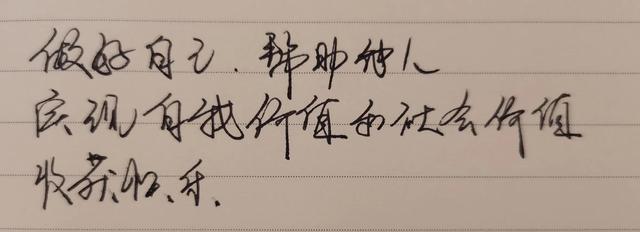 做好自己.帮助他人
实现自我价值和社会价值
收获快乐.